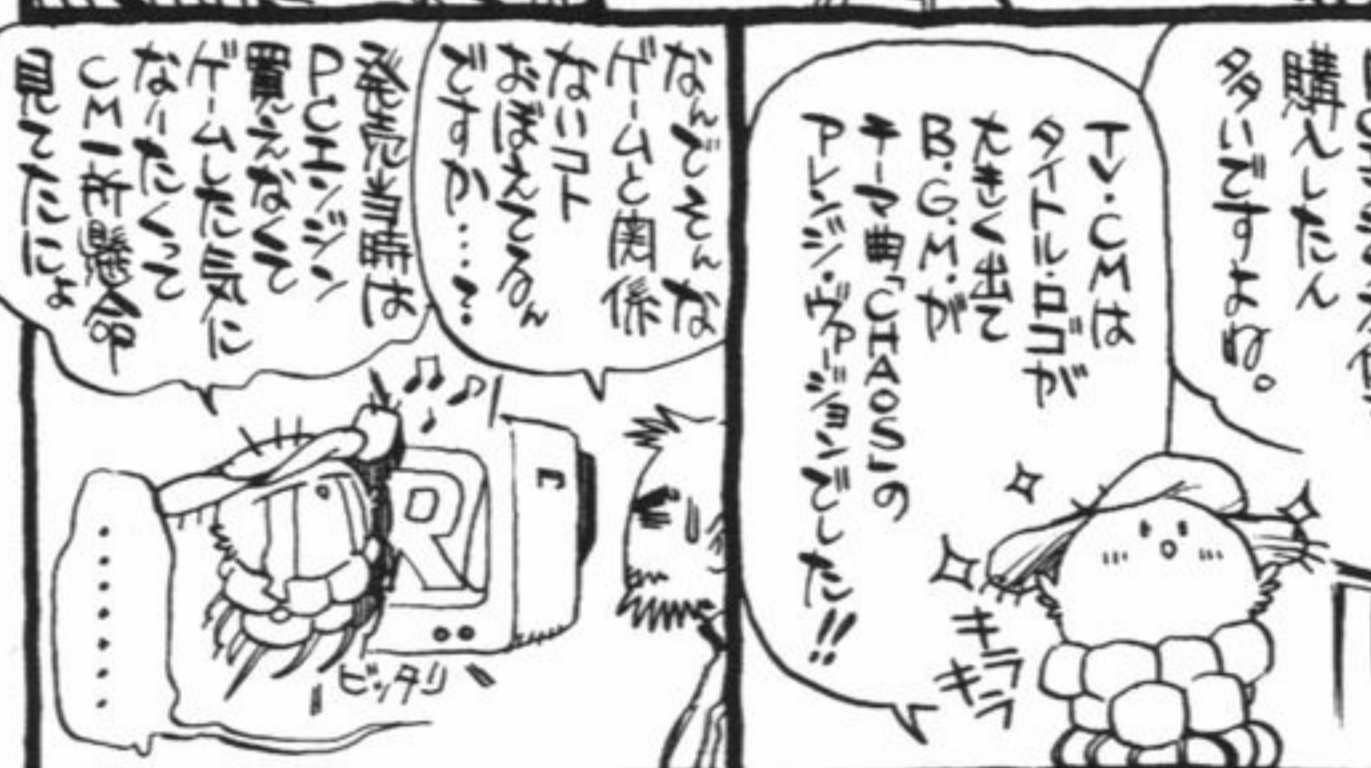 購入したん
多いですよね。
TV・CMは
タイトル・ロゴが
大きく出て
B.G.M.が
テーマ曲「CHAOS」の
アレンジ・ヴァージョンでした!!
キラ
キラ
なんでそんな
ゲームと関係
ないコト
おぼえてるん
ですか…?
発売当時は
PCエンジン
買えなくて
ゲームした気に
なりたくって
CM一所懸命
見てたにょ
R
ピッタリ
・・・・・・・・